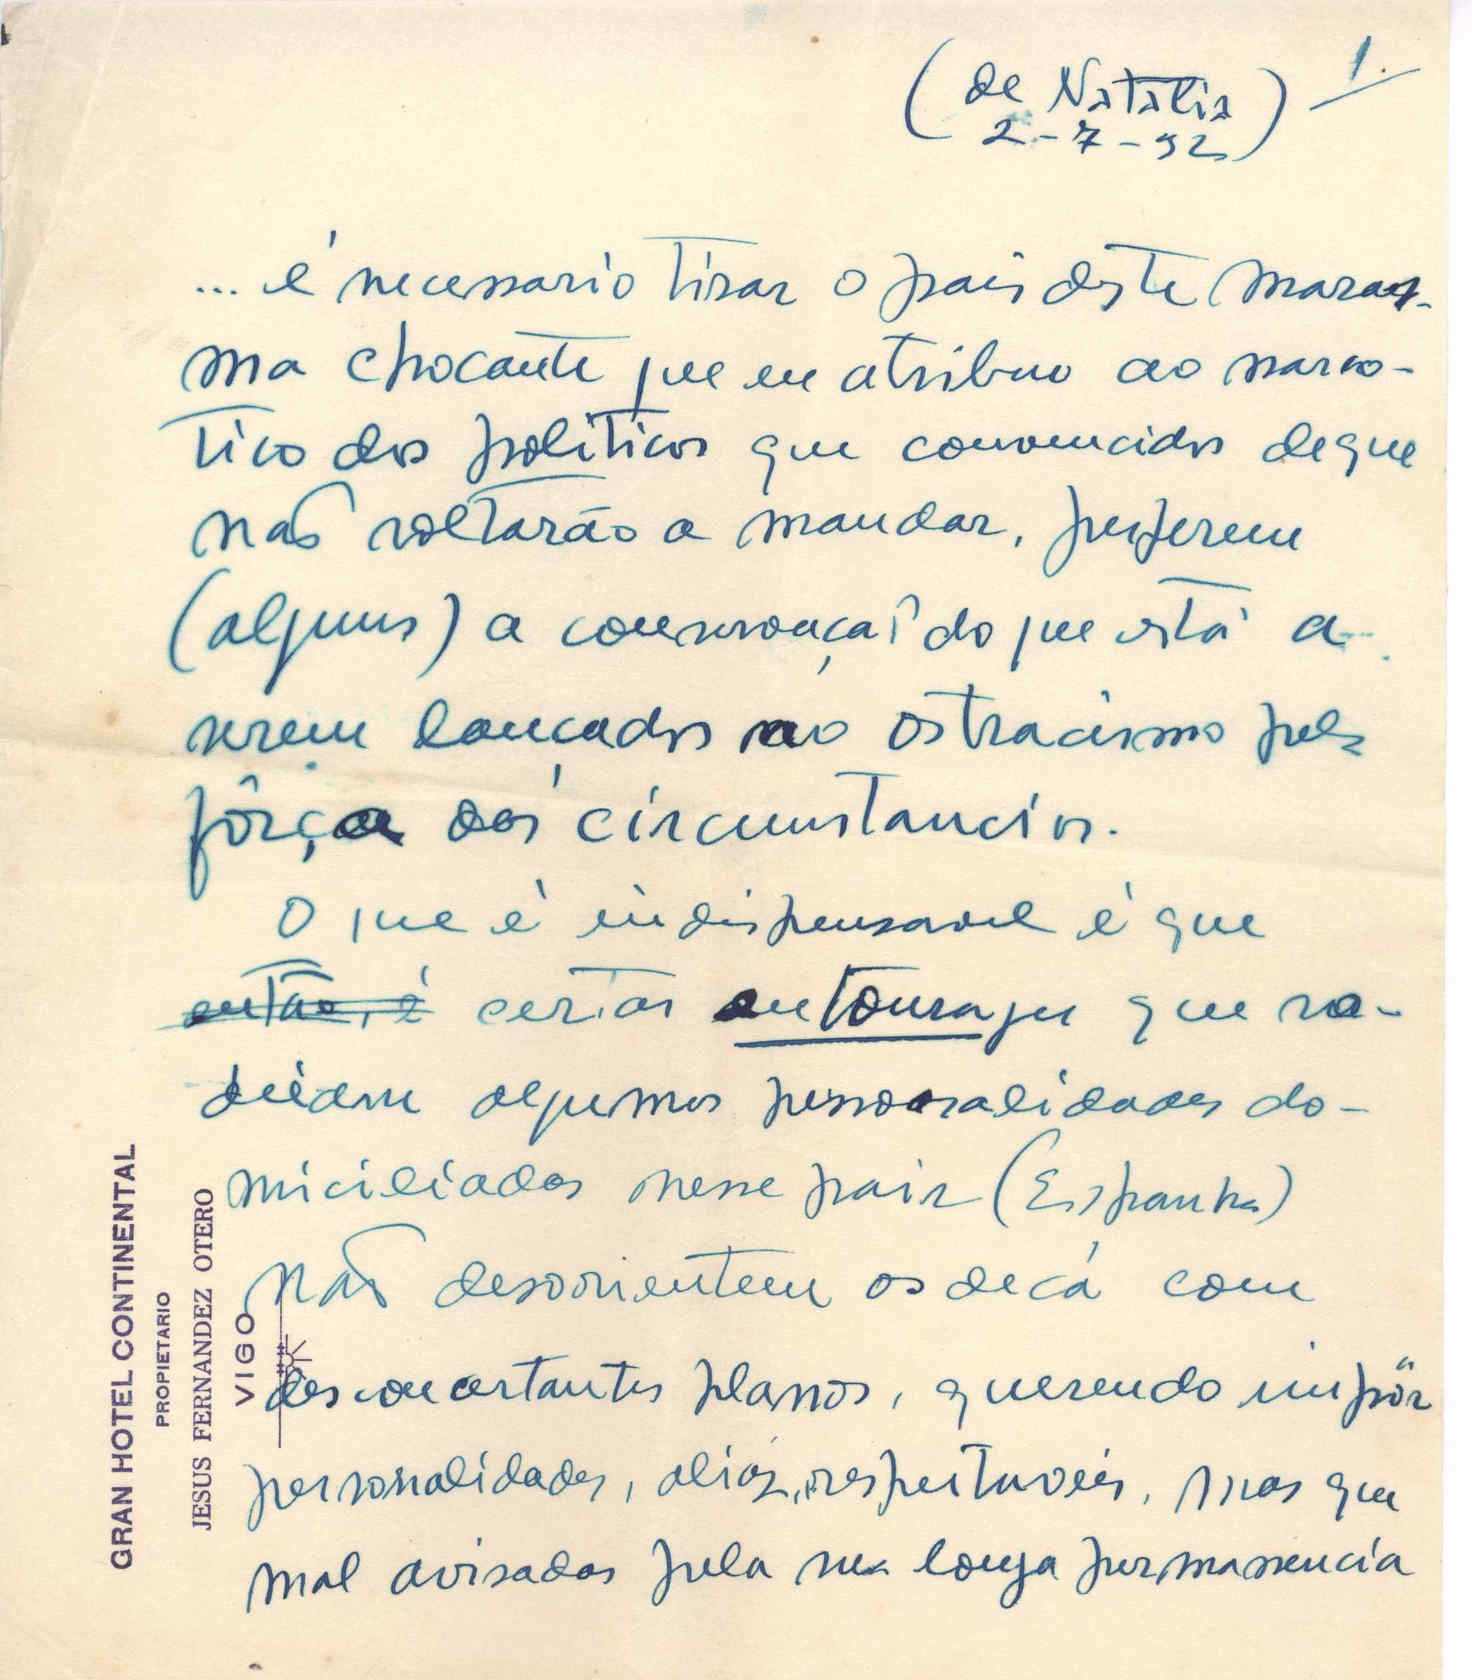 (de Natalia)
2-7-32
1.
... é necessario tirar o pais deste maras-
ma chocante que eu atribuo ao narco-
tico dos politicos que convencidos de que
não voltarão a mandar, preferem
(alguns) a conservação do que está a
serem lançados ao ostracismo pela
fôrça das circunstancias.
O que é indispensavel é que
então, é certas entourages que ro-
deiam algumas personalidades do-
miciliadas nesse pais (Espanha)
não desorientem os de cá com
desconcertantes planos, querendo impôr
personalidades, aliás, respeitaveis, mas que
mal avisadas pela sua longa permanencia
GRAN HOTEL CONTINENTAL
PROPIETARIO
JESUS FERNANDEZ OTERO
VIGO